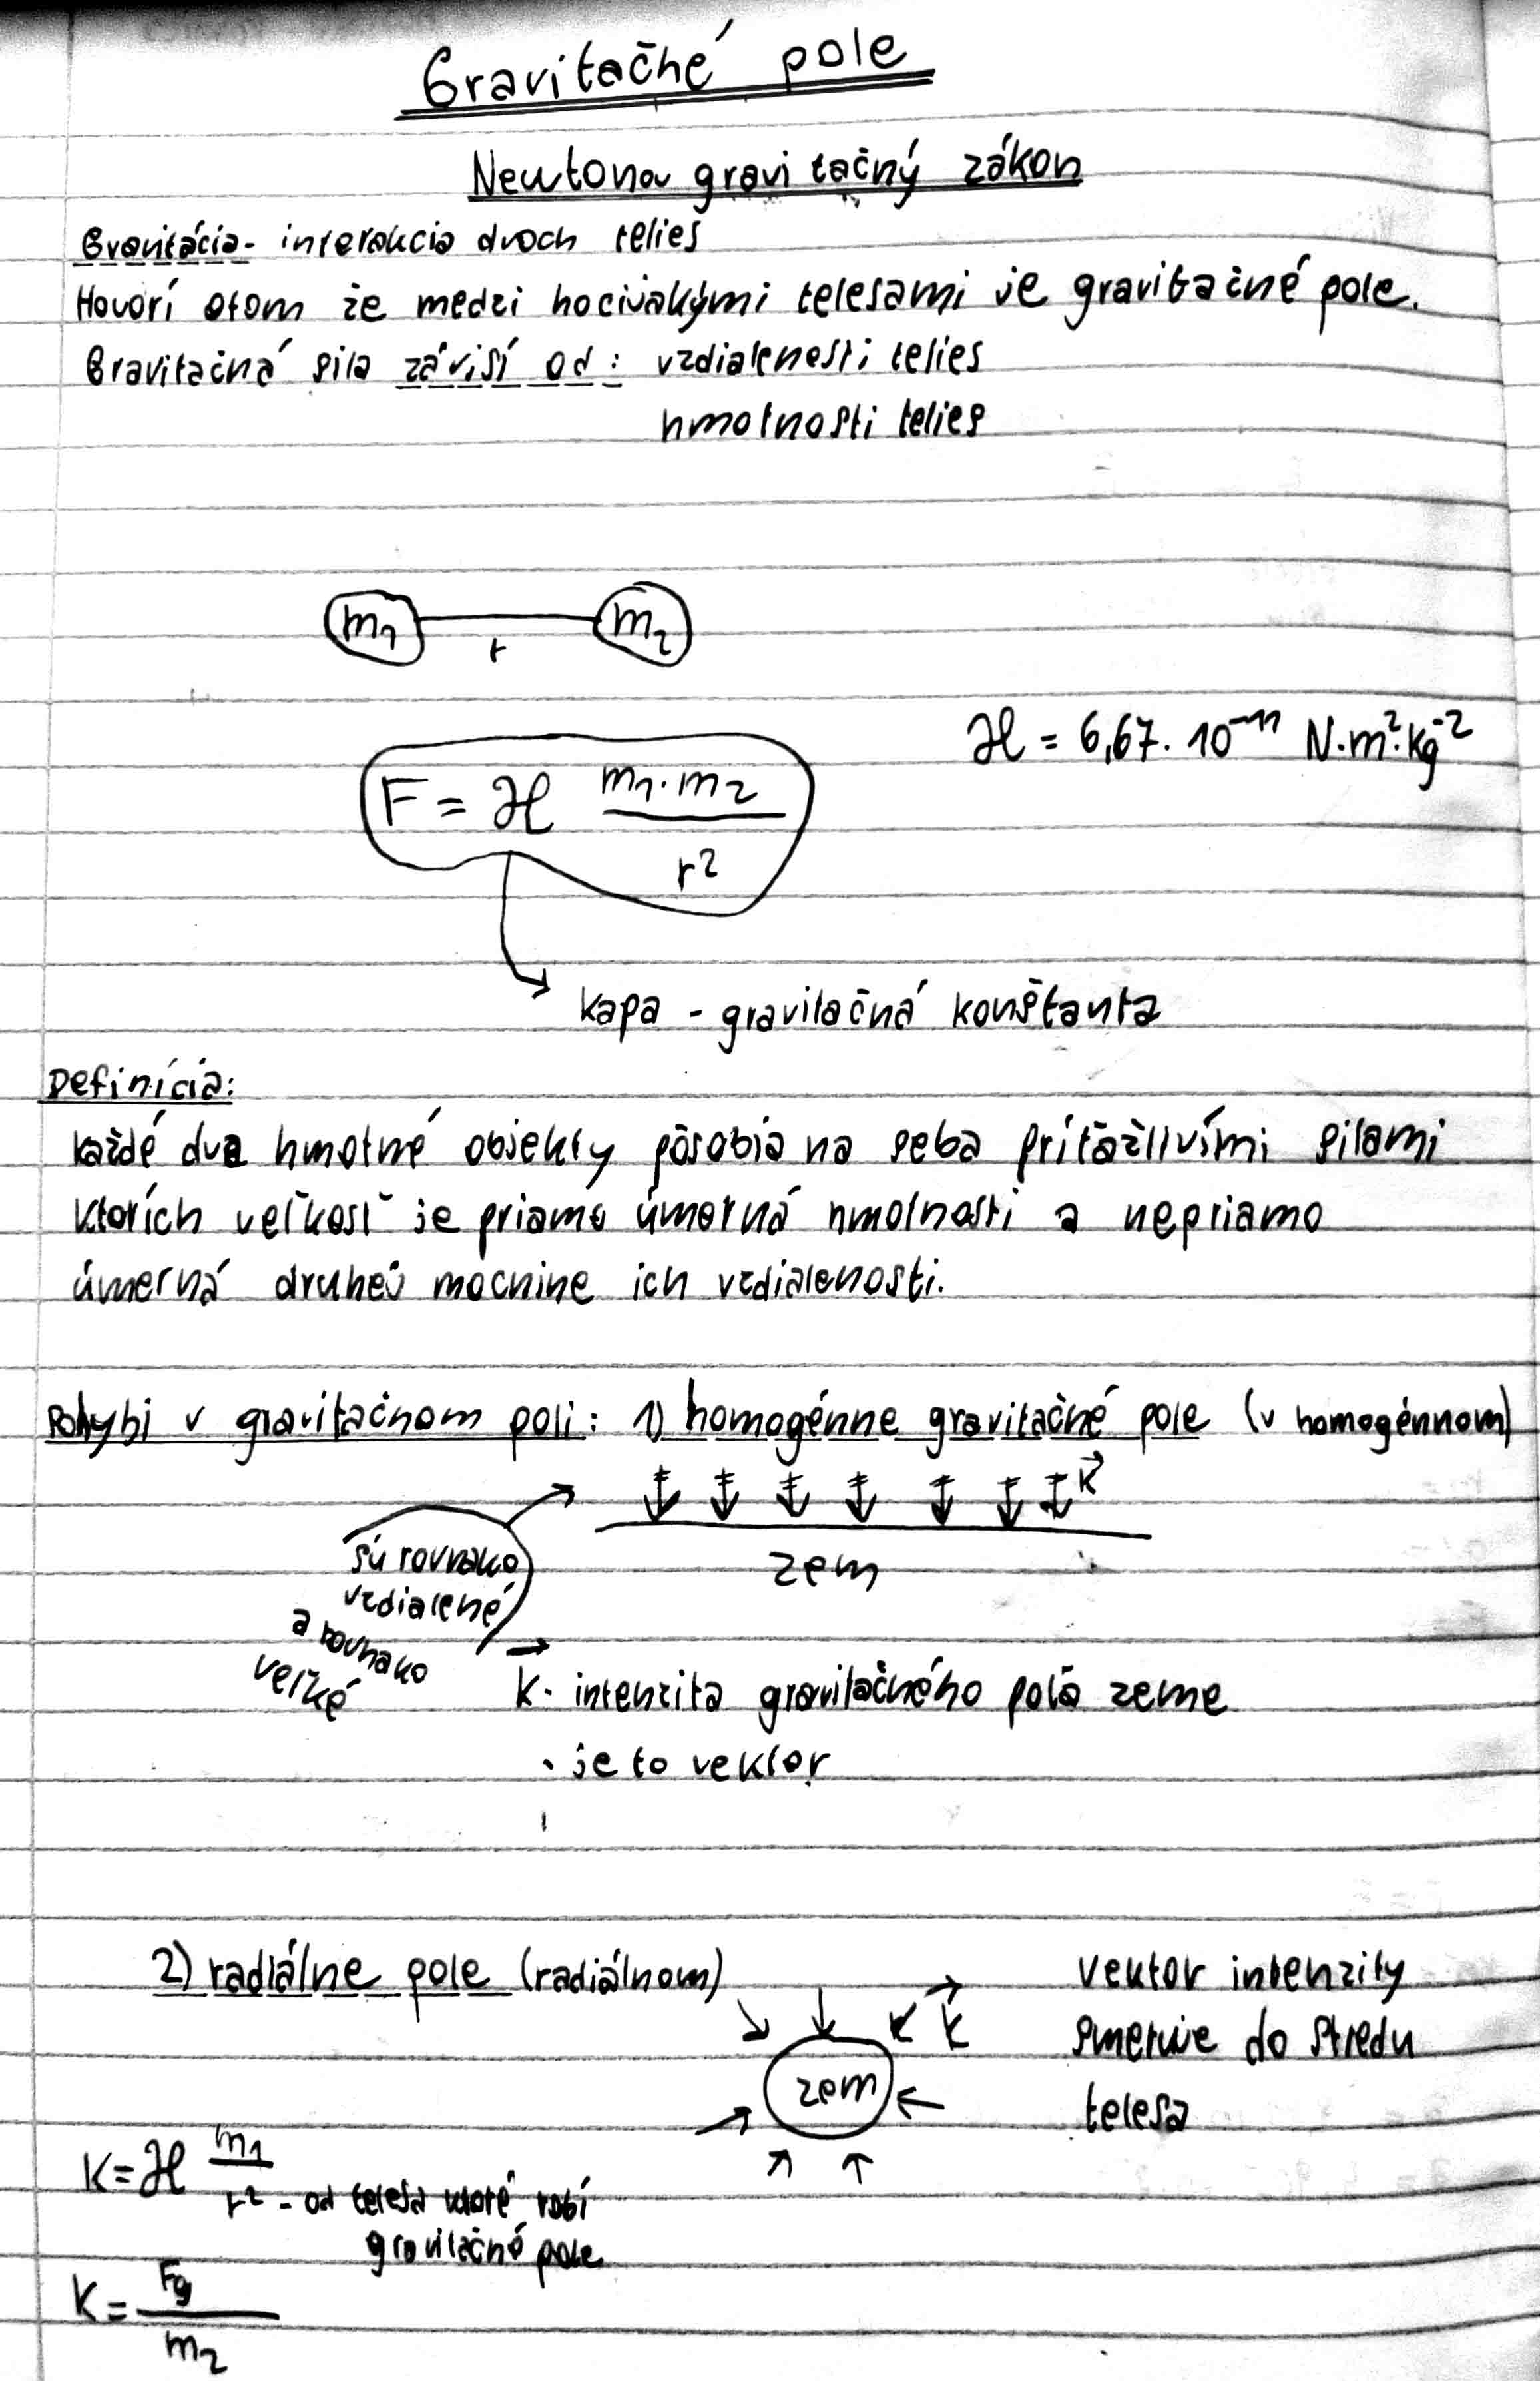 Gravitačné pole
Newtonov gravitačný zákon
Gravitácia - interakcia dvoch telies
Hovorí otom že medzi hocijakými telesami je gravitačné pole.
Gravitačná sila závisí od: vzdialenesti telies
hmotnosti telies
m₁ r m₂
ϰ = 6,67 · 10⁻¹¹ N·m²·kg⁻²
F = ϰ m₁·m₂ / r²
kapa - gravitačná konštanta
Definícia:
každé dva hmotné objekty pôsobia na seba príťažlivími silami
ktorích veľkosť je priamo úmerná hmotnosti a nepriamo
úmerná druhej mocnine ich vzdialenosti.
Pohybi v gravitačnom poli: 1) homogénne gravitačné pole (v homogénnom)
K⃗
zem
sú rovnako
vzdialené
a rovnako
veľké
K⃗ · intenzita gravitačného poľa zeme
· je to vektor
2) radiálne pole (radiálnom)
K⃗
zem
vektor intenzity
smeruje do stredu
telesa
K = ϰ m₁ / r² - od telesa ktoré robí
gravitačné pole
K = Fg / m₂